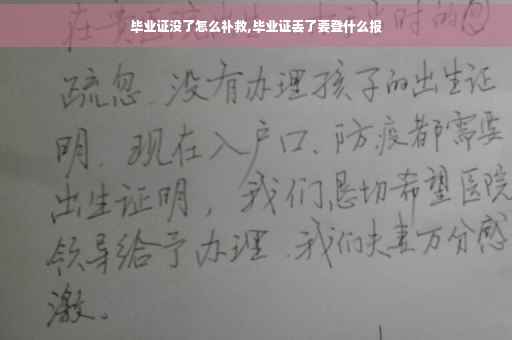 毕业证没了怎么补救,毕业证丢了要登什么报
疏忽、没有办理孩子的出生证
明、现在入户口、防疫都需要
出生证明，我们恳切希望医院
领导给予办理、我们夫妻万分感
激。